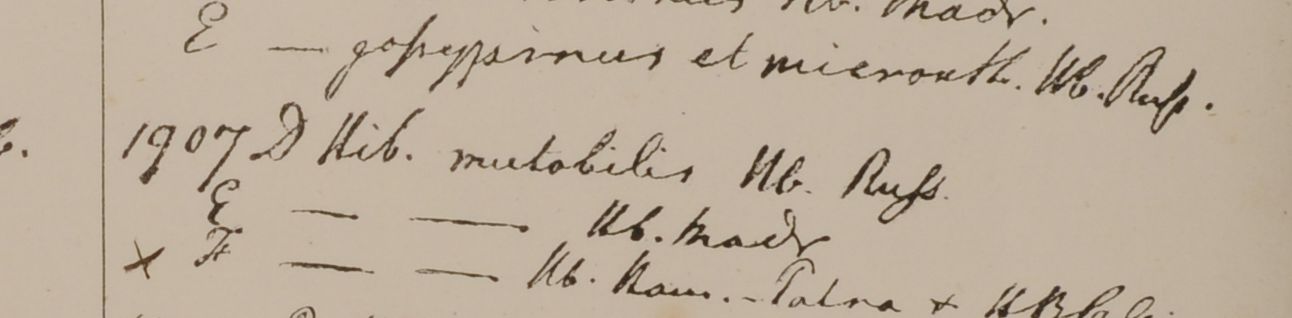 Hb. Madr.
E — gossypinus et micranth. Hb. Russ.
1907 D Hib. mutabilis Hb. Russ.
E — — Hb. Madr
× F — — Hb. Ham. - Patna +